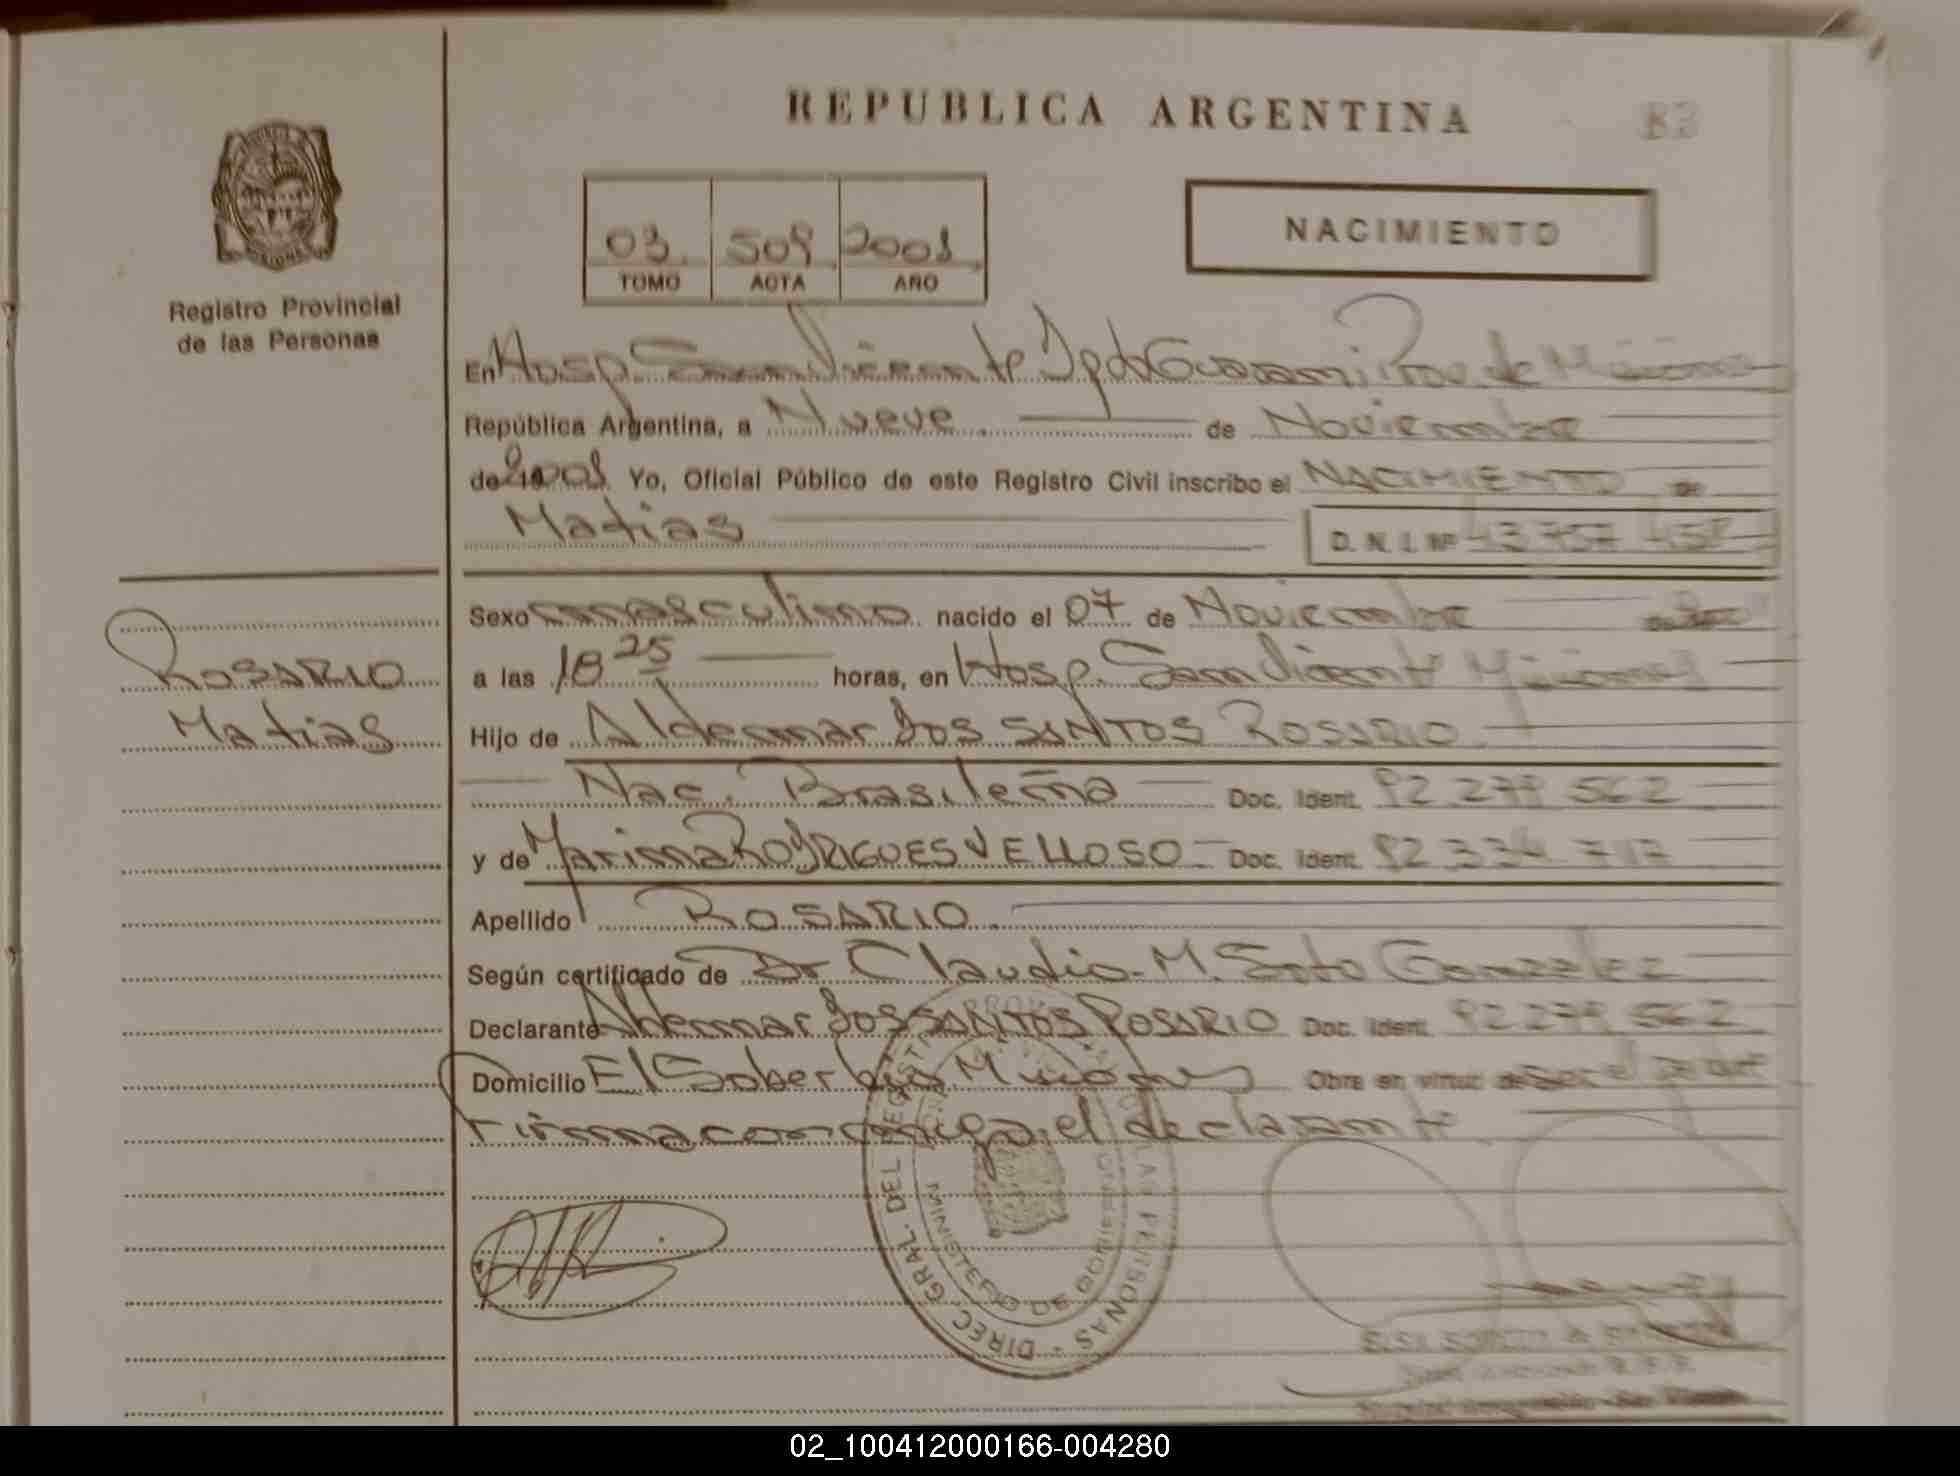 REPUBLICA ARGENTINA
83
Registro Provincial
de las Personas
03 509 2001
TOMO ACTA AÑO
NACIMIENTO
En Hosp. San Vicente Dpto Guarani Prov. de Misiones
República Argentina, a Nueve de Noviembre
de 2001 Yo, Oficial Público de este Registro Civil inscribo el NACIMIENTO de
Matias D. N. I. Nº 43 757 458
ROSARIO
Matias
Sexo masculino nacido el 07 de Noviembre
a las 18 25 horas, en Hosp. San Vicente Misiones
Hijo de Aldemar dos SANTOS ROSARIO
Nac. Brasileña Doc. Ident. 92 279 562
y de Marina RODRIGUES VELLOSO Doc. Ident. 92 334 717
Apellido ROSARIO
Según certificado de Dr Claudio M. Soto Gonzalez
Declarante Aldemar dos SANTOS ROSARIO Doc. Ident. 92 279 562
Domicilio El Soberbio Misiones Obra en virtud de Ser el Padre
Firma conmigo el declarante
DIREC. GRAL. DEL REGISTRO PROV. DE LAS PERSONAS
MINISTERIO DE GOBIERNO
02_100412000166-004280